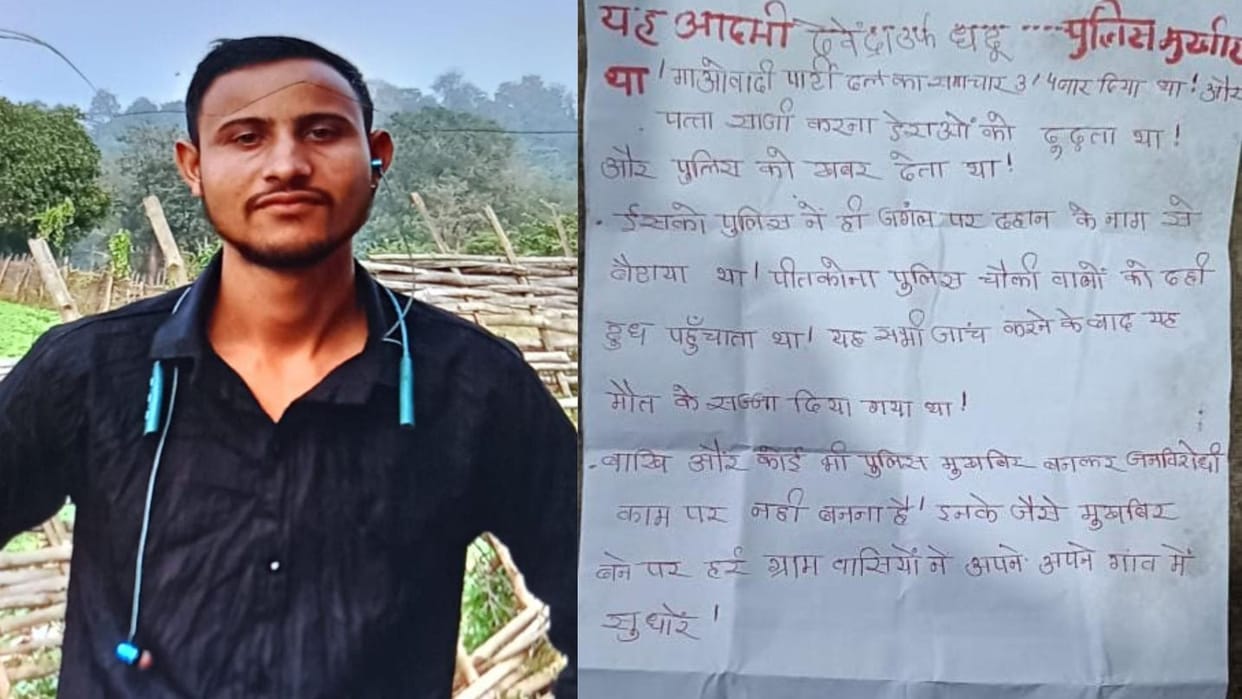 यह आदमी देवेंद्र उर्फ धदू ---- पुलिस मुखबीर
था! माओवादी पार्टी दल का समाचार 3/4 बार दिया था! और
पत्ता साजी करना डेराओं को ढूढता था!
और पुलिस को खबर देता था!
• ईसको पुलिस ने ही जगंल पर दहान के नाम से
बैठाया था! पीतकोना पुलिस चौकी वालों को दही
दुध पहुँचाता था! यह सभी जांच करने के बाद यह
मौत के सज्जा दिया गया था!
• बाखि और कोई भी पुलिस मुखबिर बनकर जनविरोधी
काम पर नही बनना है! इनके जैसे मुखबिर
बेन पर हर्र ग्राम वासियों ने अपने अपने गांव में
सुधोरें!